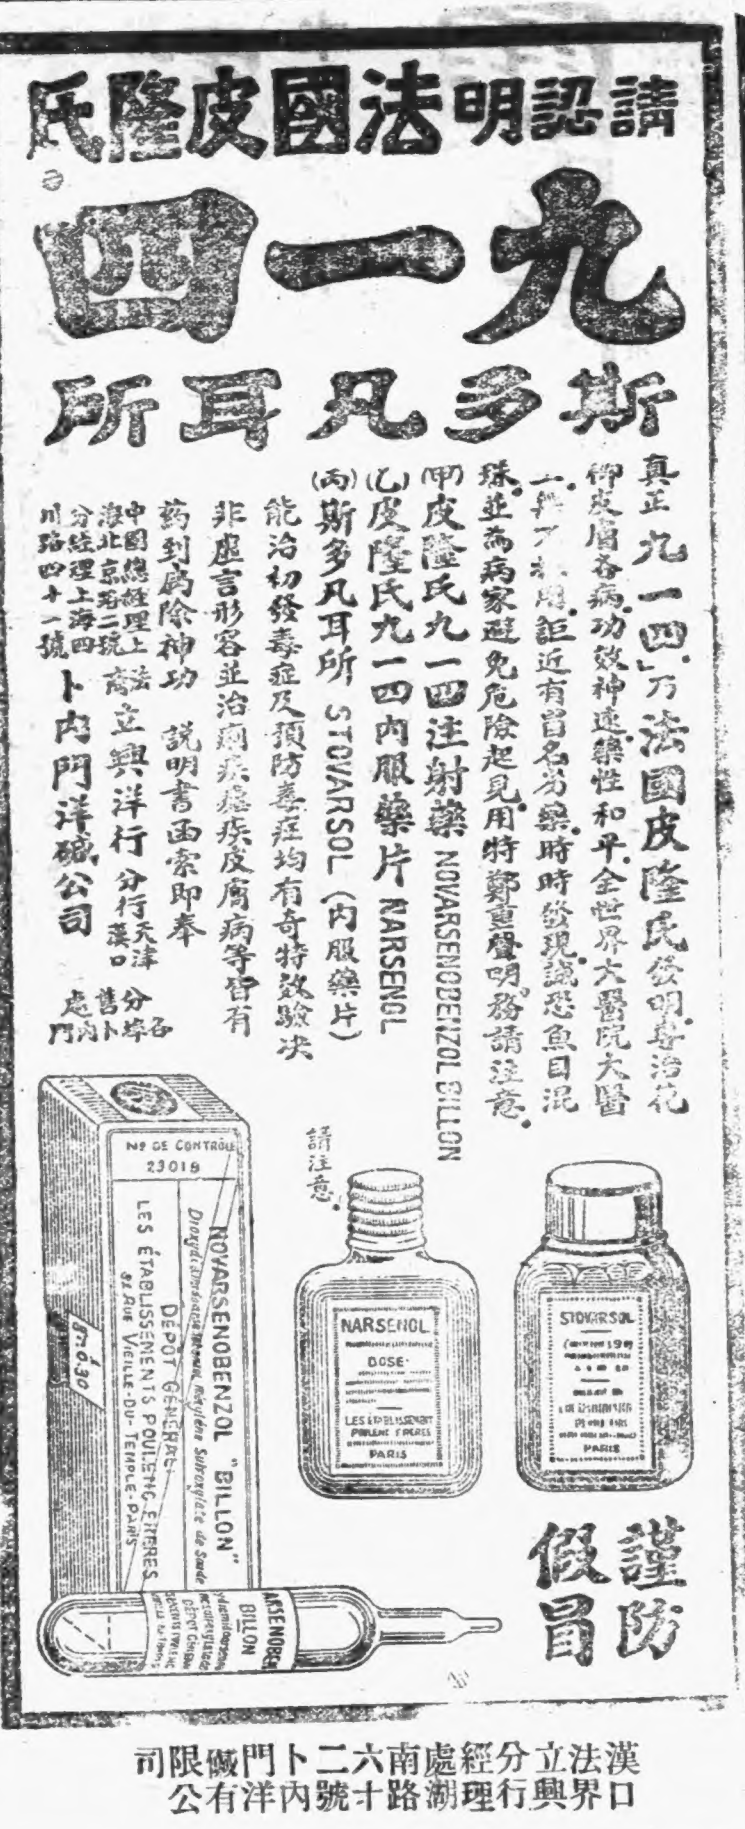 請認明法國皮隆氏
九一四
斯多凡耳所
真正九一四」乃法國皮隆氏發明.專治花
柳皮膚各病.功效神速.藥性和平.全世界大醫院大醫
採用.詎近有冒名劣藥.時時發現.誠恐魚目混
珠.並為病家避免危險起見.用特鄭重聲明.務請注意.
(甲)皮隆氏九一四注射藥 NOVARSENOBENZOL BILLON
(乙)皮隆氏九一四內服藥片 NARSENOL
(丙)斯多凡耳所 STOVARSOL (內服藥片)
能治初發毒症及預防毒症均有奇特效驗决
非虛言形容並治痢疾瘧疾皮膚病等皆有
藥到病除神功 説明書函索即奉
中國總經理上
海北京路二號
法商立興洋行
分行天津
漢口
分經理上海四
川路四十一號
卜內門洋碱公司
各埠卜內門
分售處
請注意.
Nº DE CONTRÔLE
23019
NOVARSENOBENZOL "BILLON"
DÉPÔT GÉNÉRAL
LES ÉTABLISSEMENTS POULENC FRÈRES
RUE VIEILLE-DU-TEMPLE-PARIS
gr. 0.30
NARSENOL
DOSE
PARIS
STOVARSOL
PARIS
ARSENOBEN
BILLON
謹防
假冒
漢口法界立興洋行分經理處湖南路六十二號卜內門洋碱有限公司